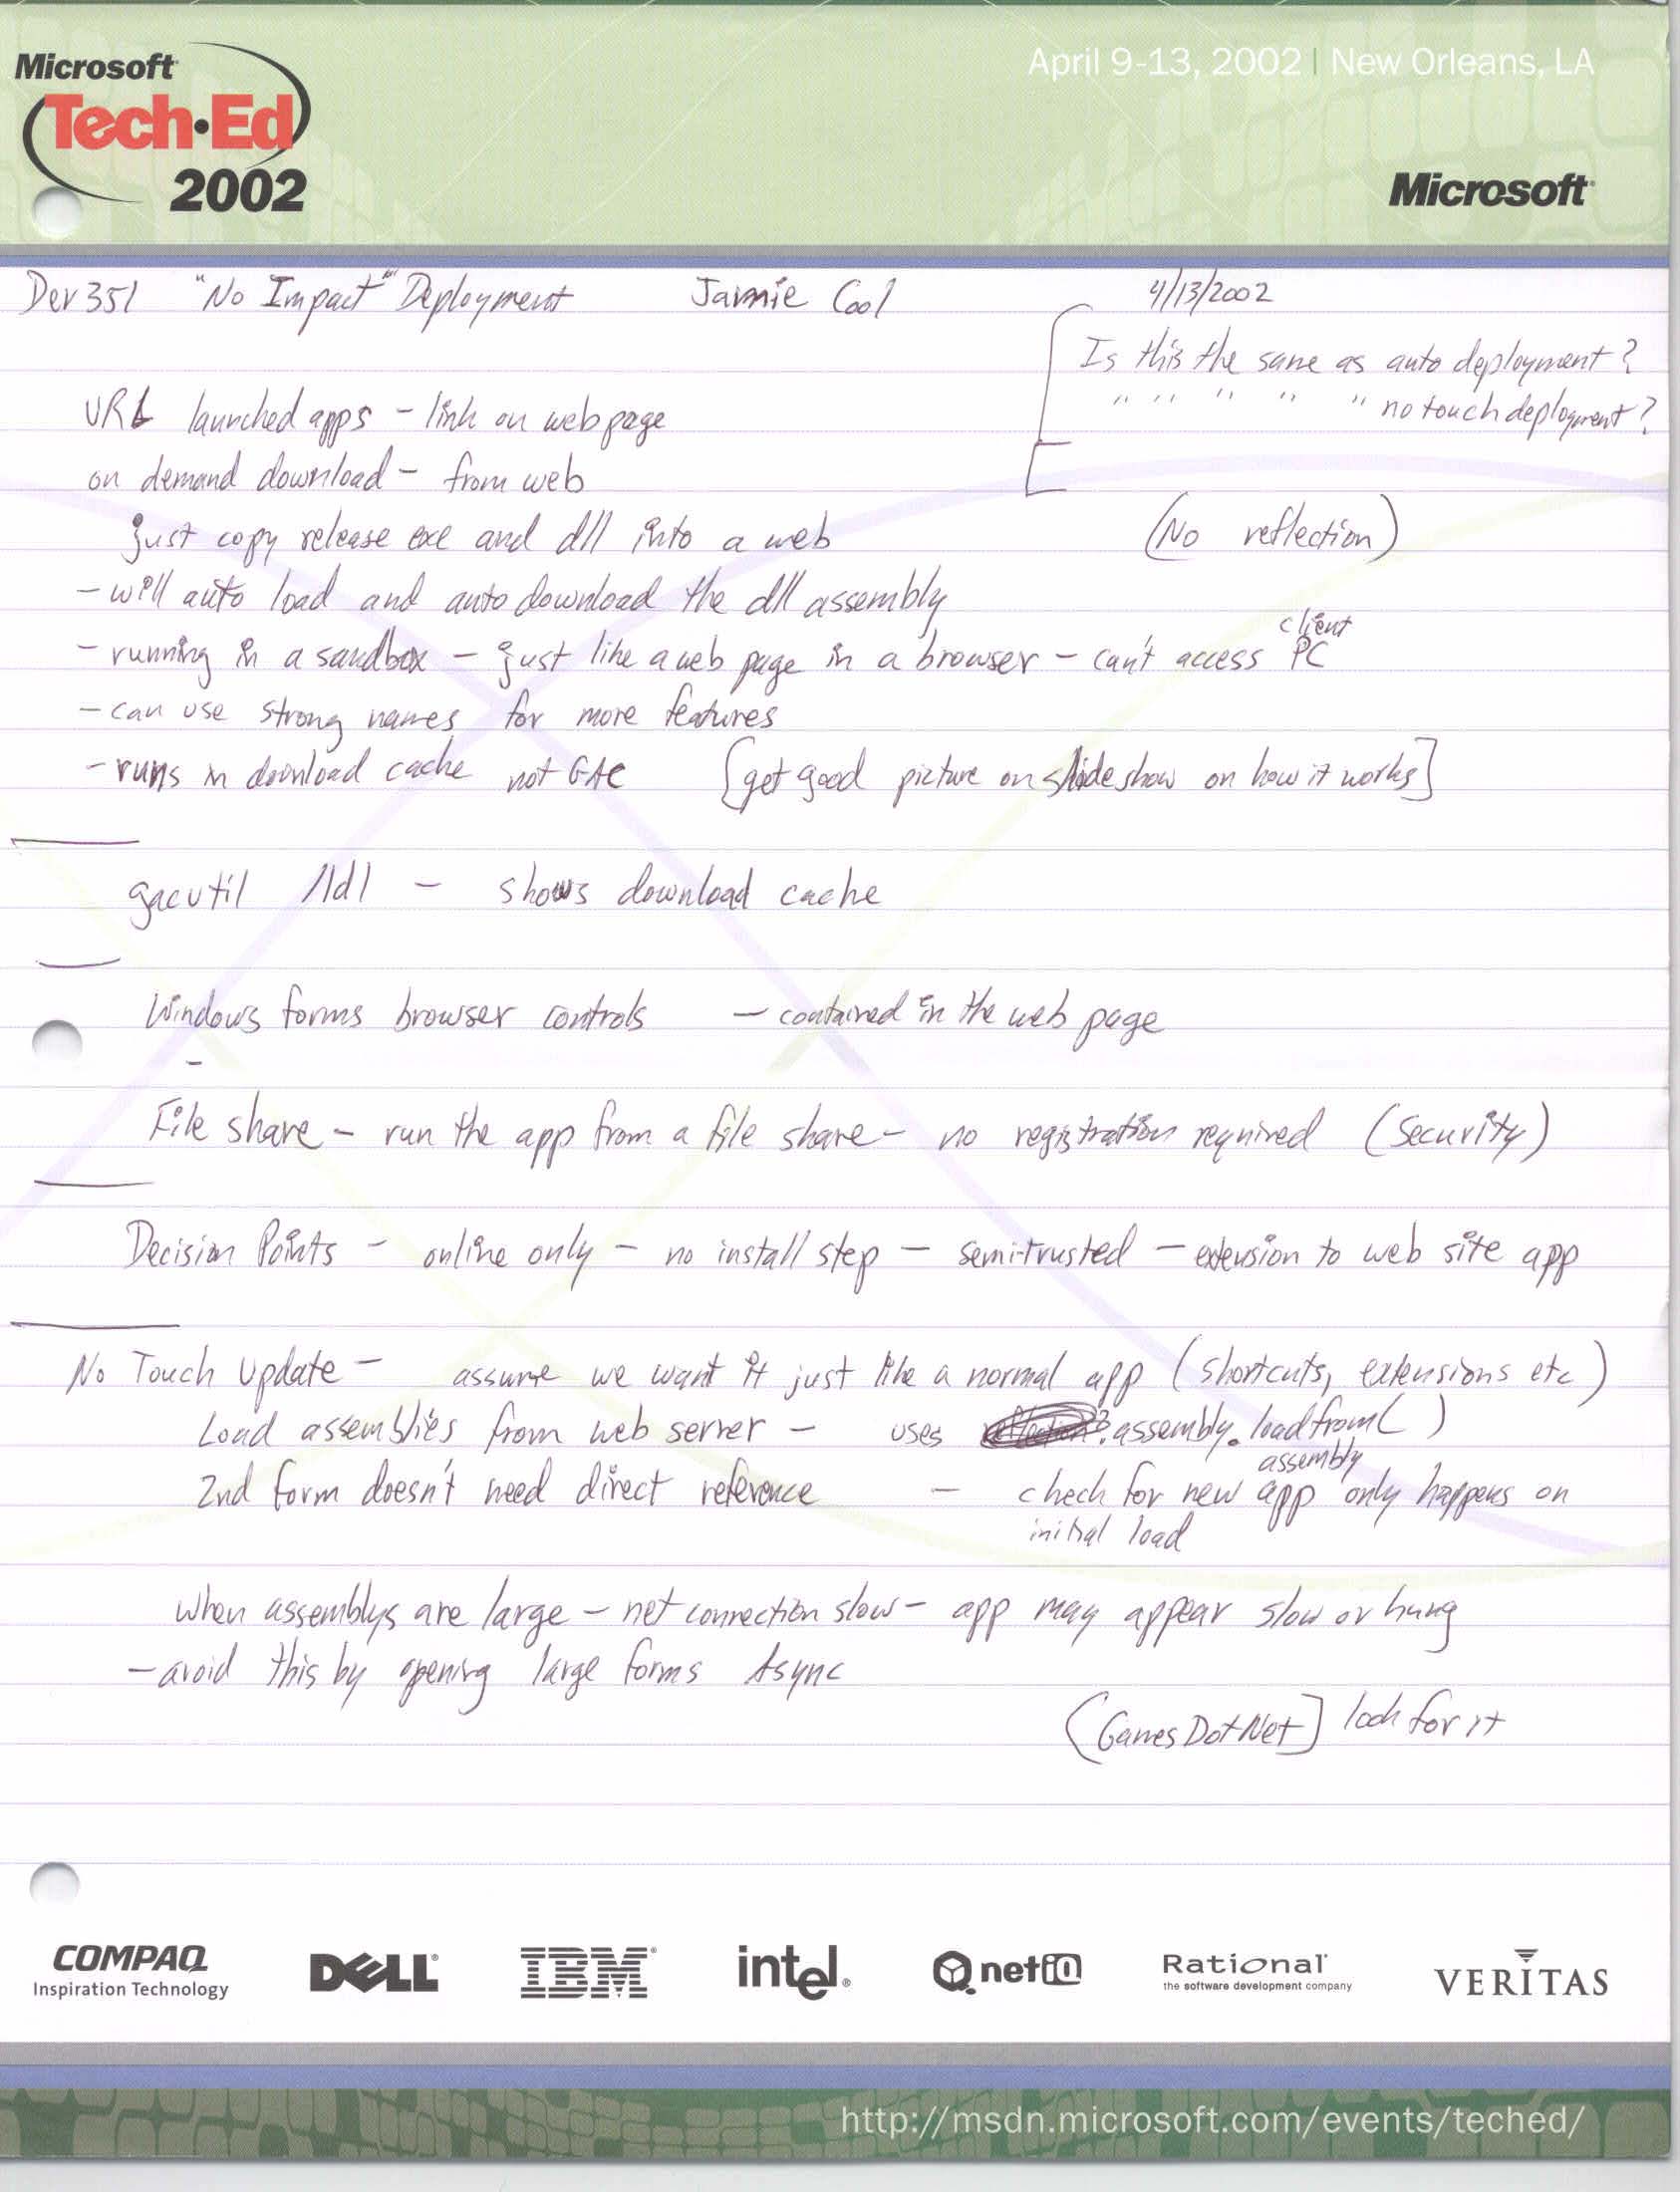 Microsoft
Tech·Ed
2002
April 9-13, 2002 | New Orleans, LA
Microsoft
Dev 351 "No Impact" Deployment Jamie Cool 4/13/2002
Is this the same as auto deployment?
" " " " " no touch deployment?
URL launched apps - link on web page
on demand download - from web
just copy release exe and dll into a web (No reflection)
- will auto load and auto download the dll assembly
- running in a sandbox - just like a web page in a browser - can't access client PC
- can use strong names for more features
- runs in download cache not GAC [get good picture on slideshow on how it works]
gacutil /ldl - shows download cache
Windows forms browser controls - contained in the web page
-
File share - run the app from a file share - no registration required (Security)
Decision Points - online only - no install step - semi-trusted - extension to web site app
No Touch Update - assume we want it just like a normal app (shortcuts, extensions etc)
Load assemblies from web server - uses assembly.loadfrom( )
2nd form doesn't need direct reference - check for new app assembly only happens on
initial load
When assemblys are large - net connection slow - app may appear slow or hung
- avoid this by opening large forms Async
[GamesDotNet] look for it
COMPAQ
Inspiration Technology
DELL
IBM
intel.
netiQ
Rational
the software development company
VERITAS
http://msdn.microsoft.com/events/teched/